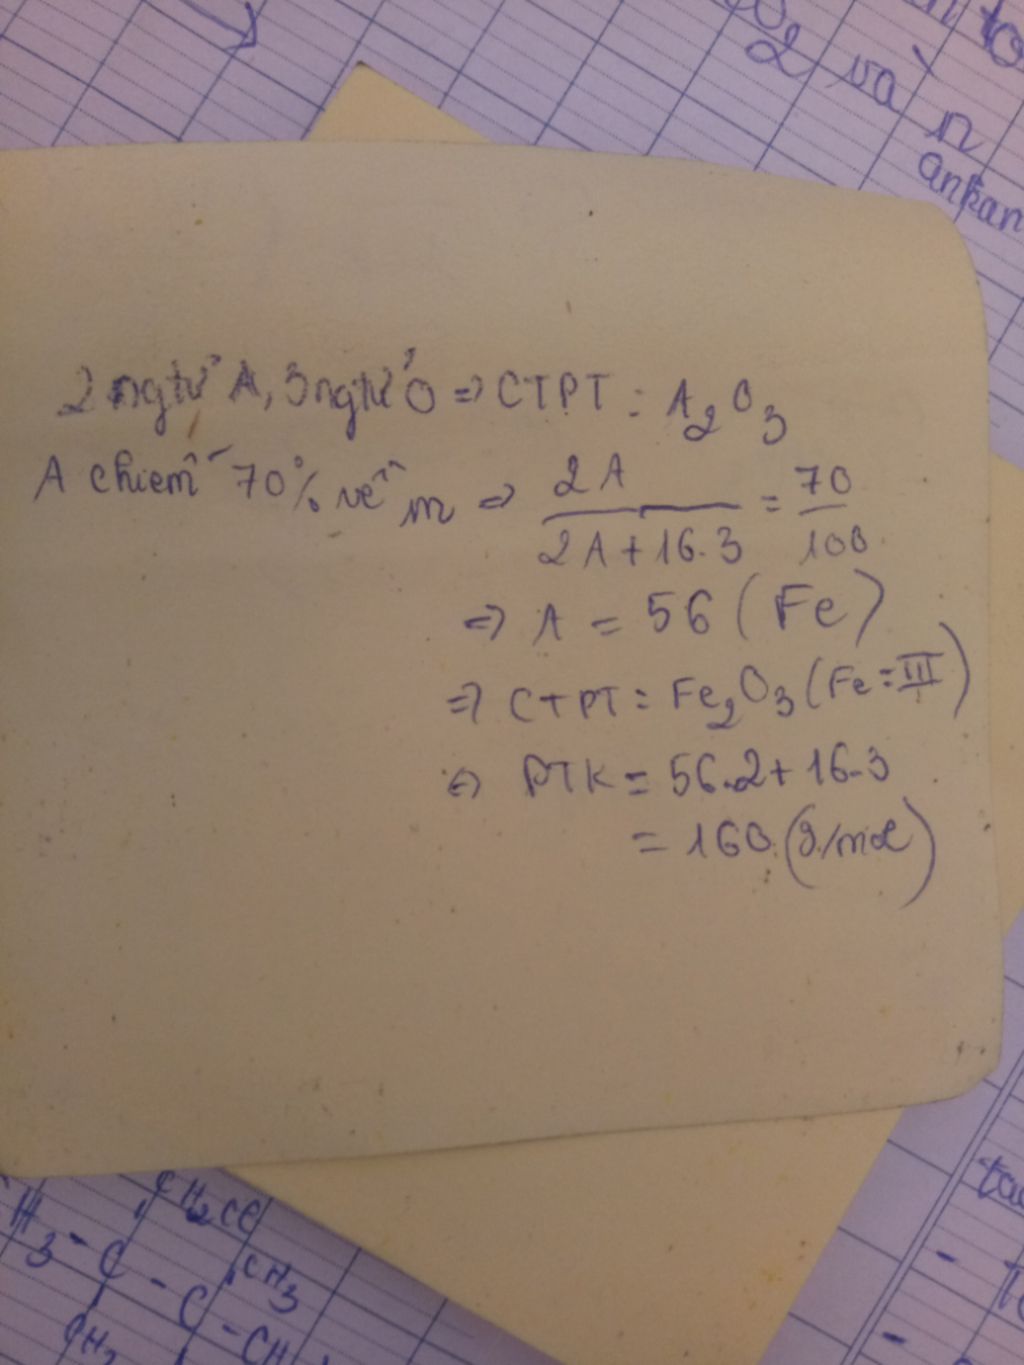 O2 và n
ankan
2 ngtử A, 3 ngtử O => CTPT : A2O3
A chiếm 70% về m => 2A / 2A + 16.3 = 70 / 100
=> A = 56 ( Fe )
=> CTPT : Fe2O3 ( Fe = III )
<=> PTK = 56.2 + 16.3
= 160 (g/mol)
CH2Cl
H3 - C - C - CH
CH3
CH2